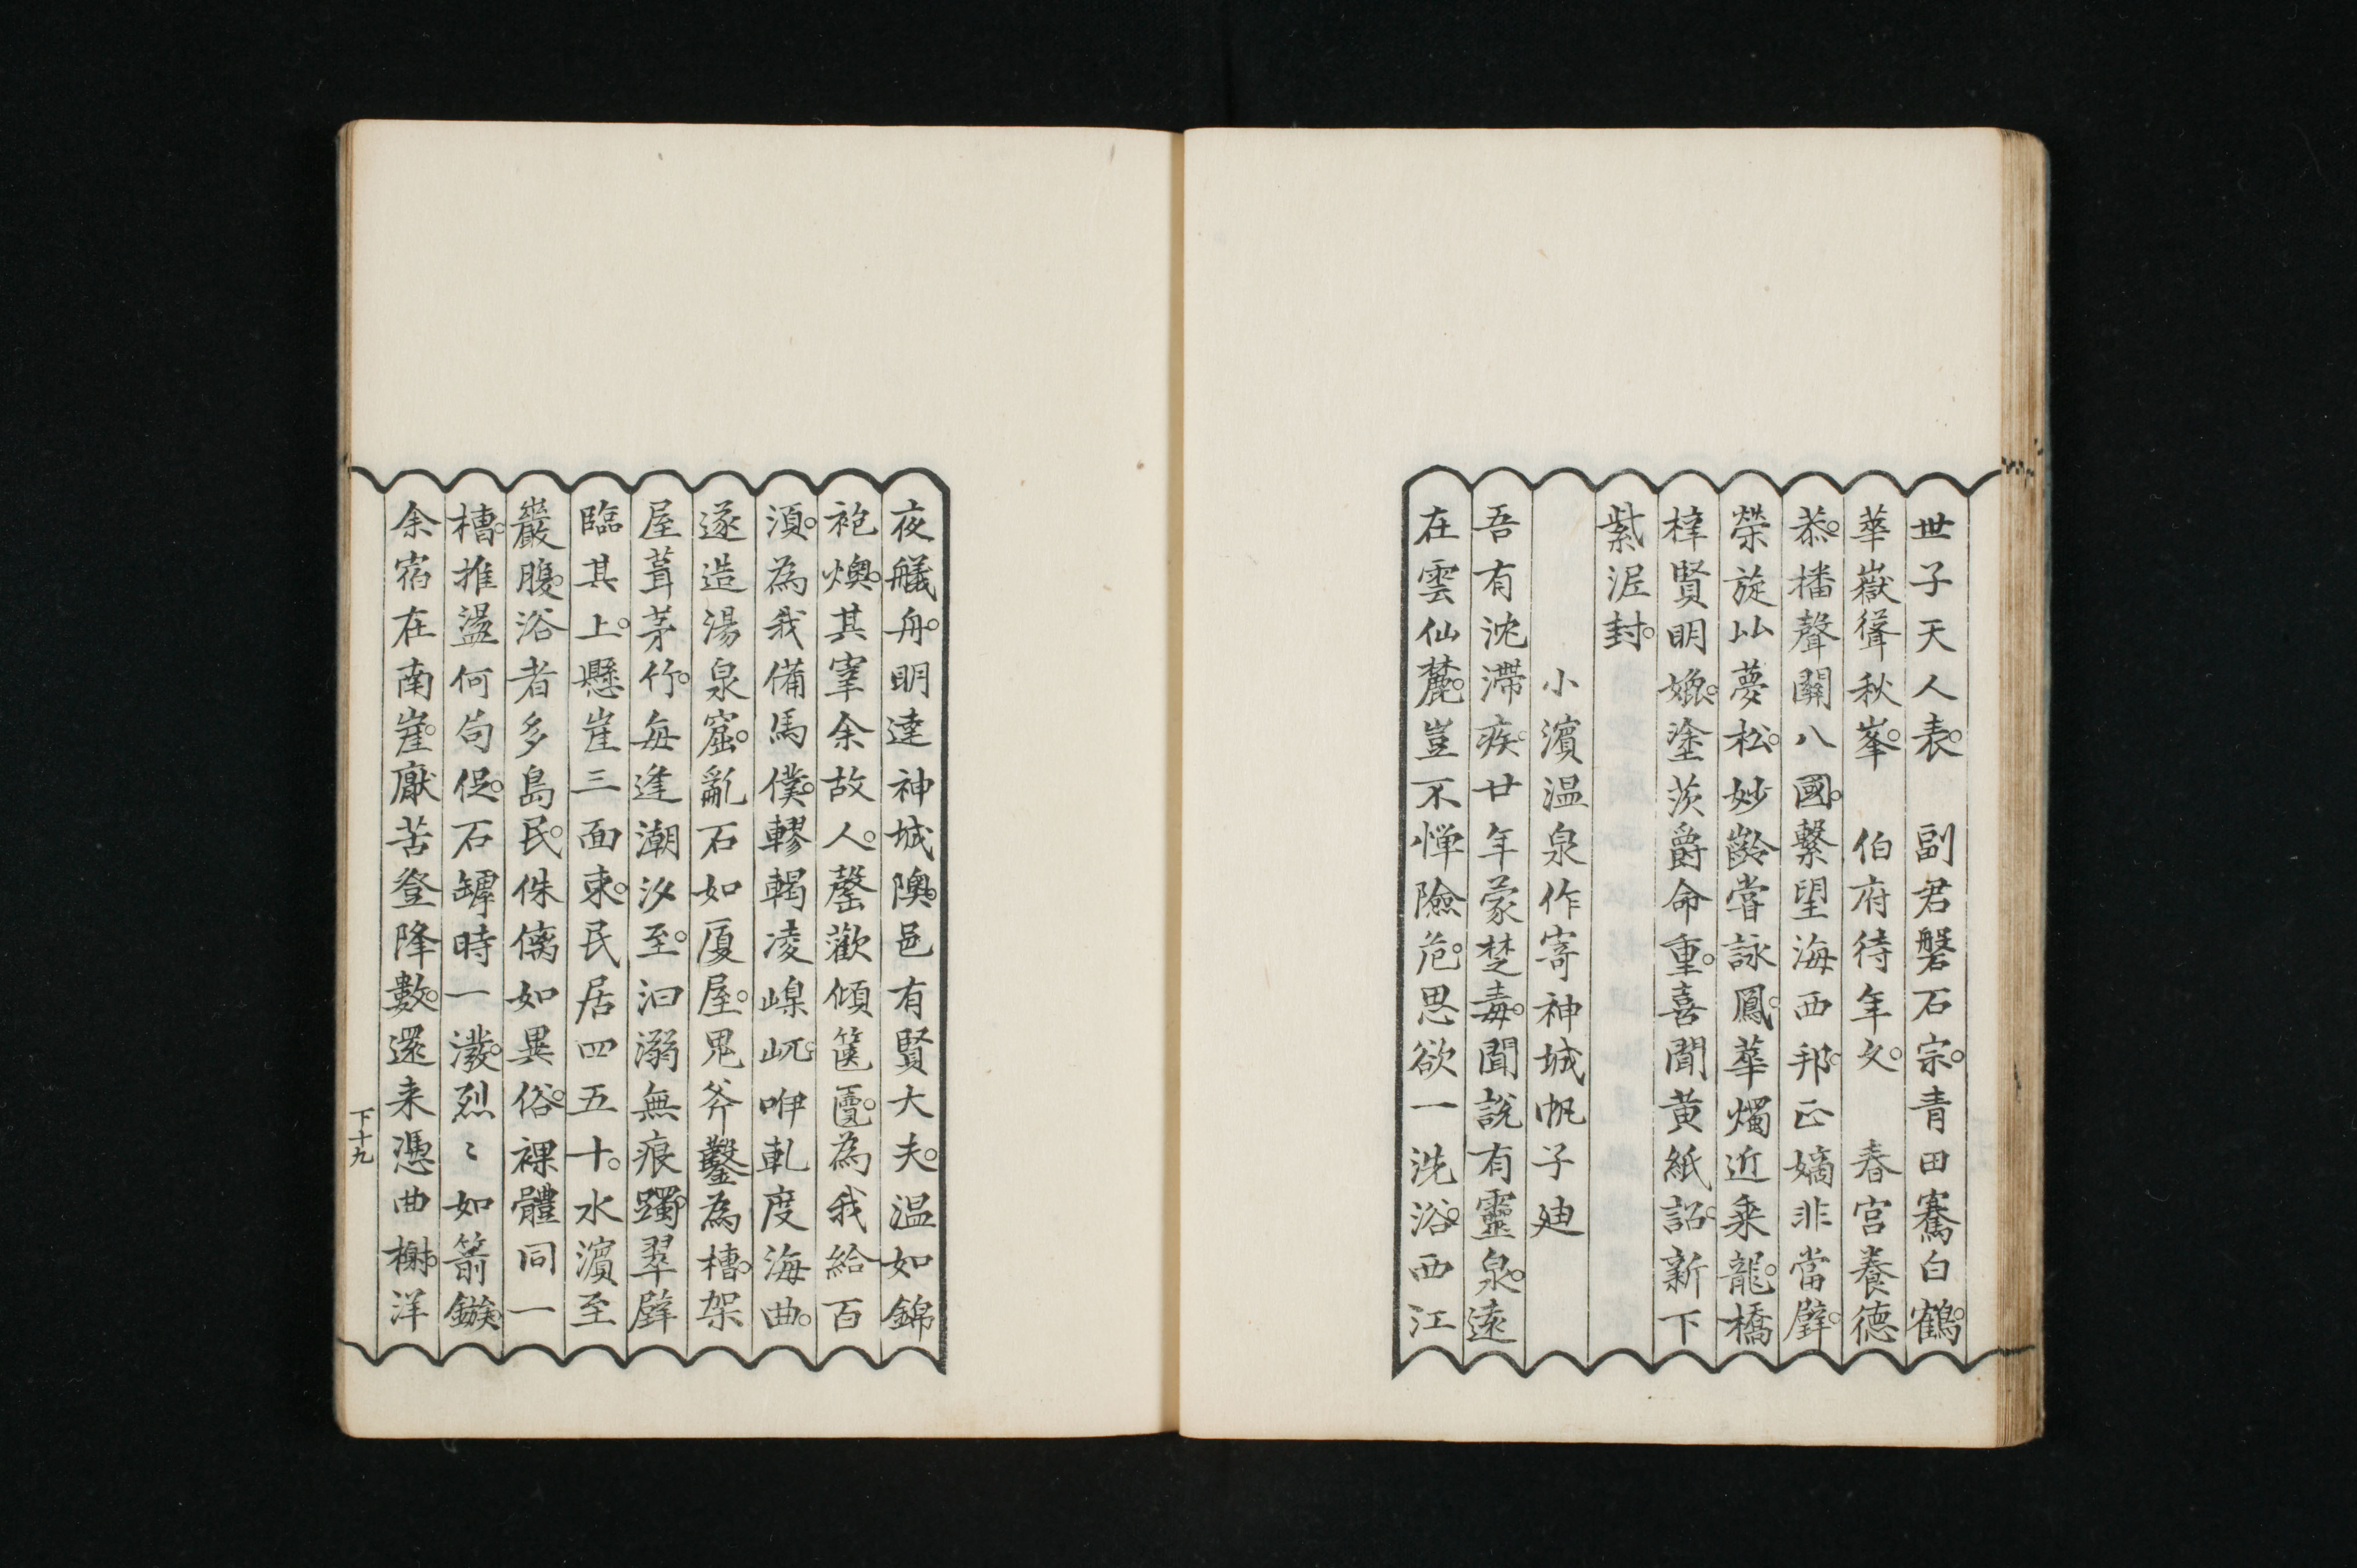 世子天人表。　副君磐石宗。青田騫白鶴。
華嶽聳秋峯。　伯府待年文。　春宮養德
恭。播聲關八國。繫望海西邦。正嫡非當璧。
榮旋比夢松。妙齡嘗詠鳳。華燭近乘龍。橋
梓賢明媲。塗茨爵命重。喜聞黄紙詔。新下
紫泥封。
小濱温泉作寄神城帆子廸
吾有沈滯疾。廿年蒙楚毒。聞說有靈泉。遠
在雲仙麓。豈不惮險危。思欲一洗浴。西江
夜艤舟。明達神城隩。邑有賢大夫。温如錦
袍燠。其宰余故人。罄歡傾篋匵。為我給百
湏。為我備馬僕。轇轕凌嵲屼。咿軋度海曲。
遂造湯泉窟。亂石如厦屋。鬼斧鑿為槽。架
屋葺茅竹。每逢潮汐至。汩溺無痕躅。翠壁
臨其上。懸崖三面束。民居四五十。水濱至
巖腹。浴者多島民。侏儷如異俗。裸體同一
槽。推盪何局促。石罅時一潑。烈〻如箭鏃。
余宿在南崖。厭苦登降數。還来憑曲榭。洋
下十九